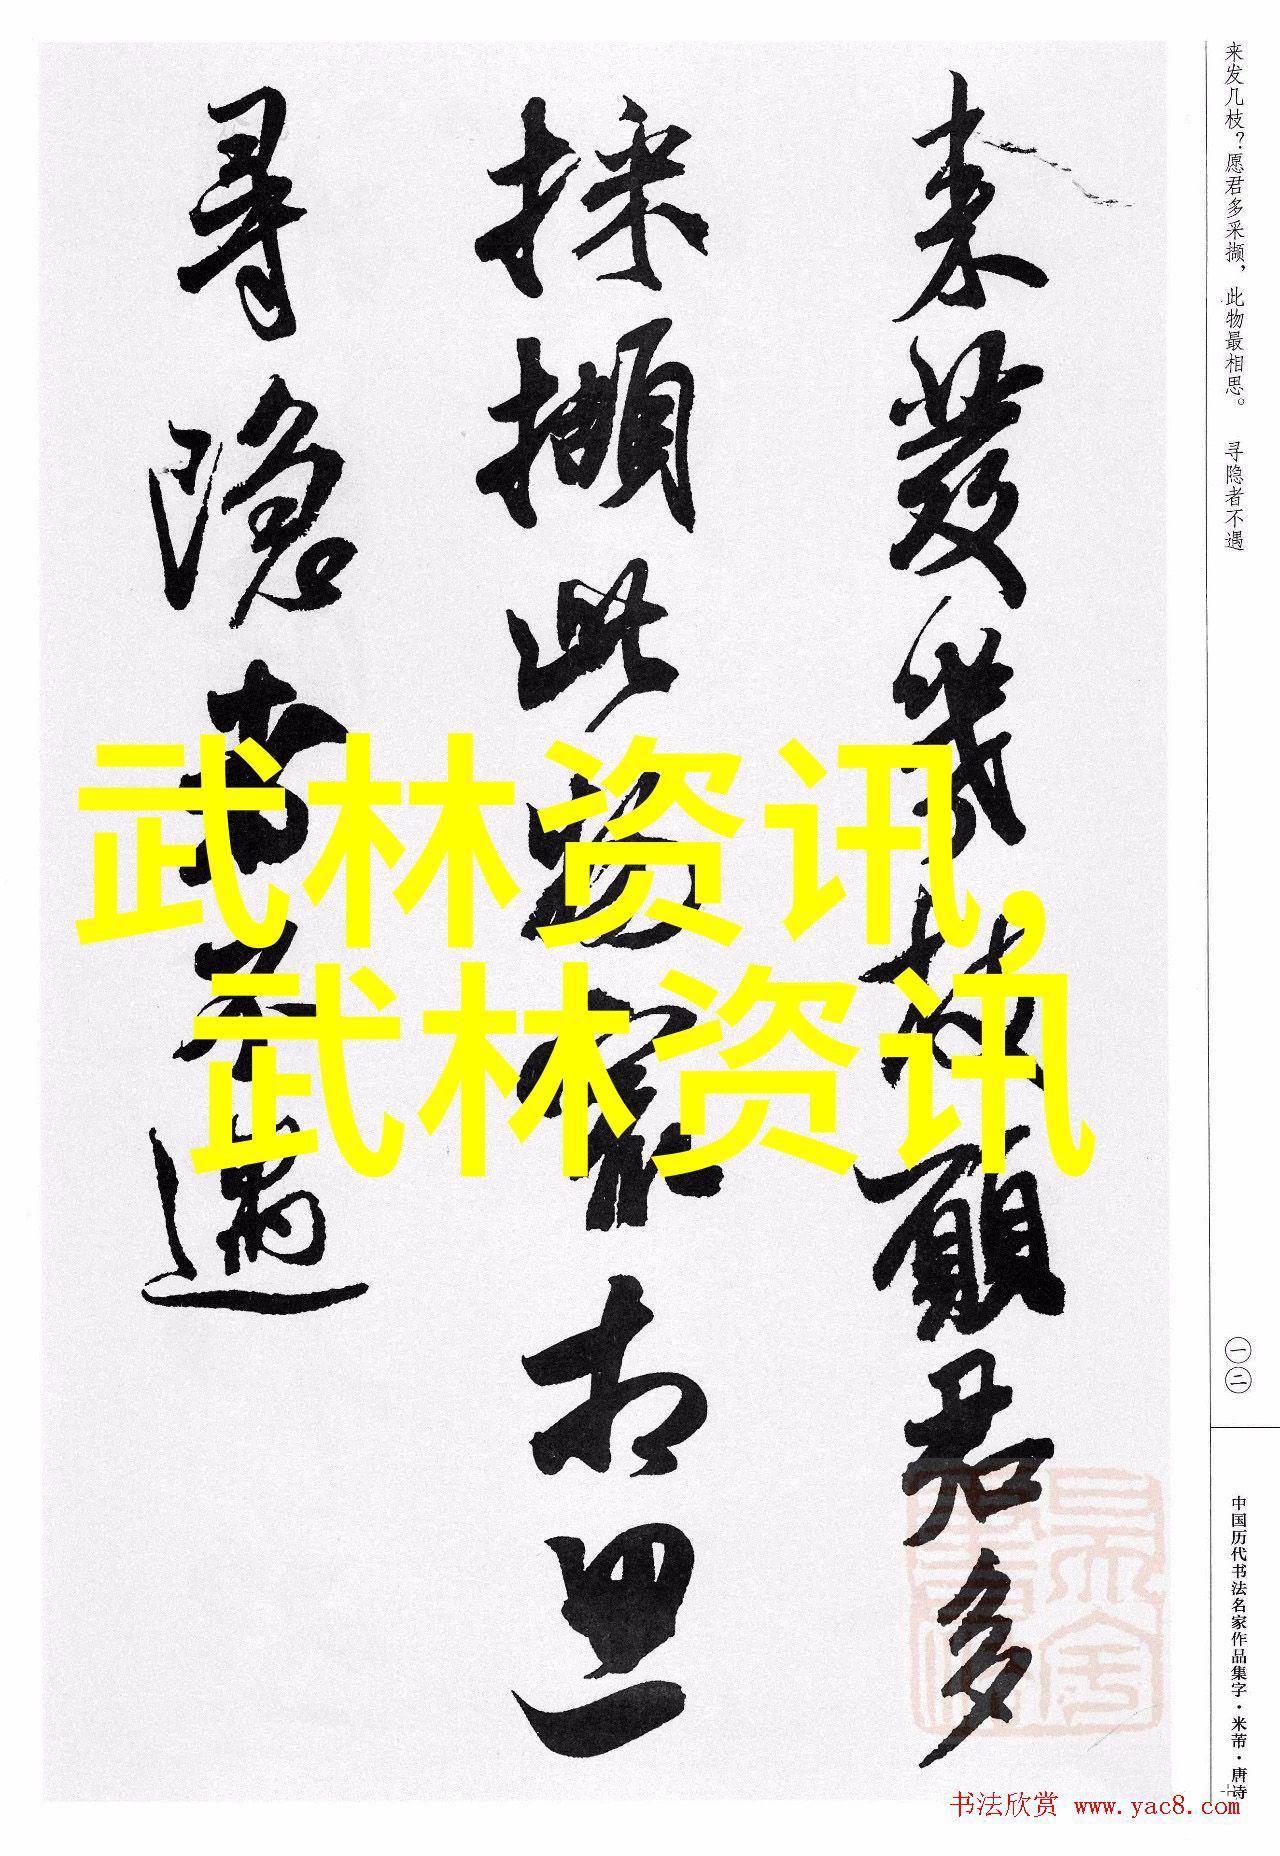 来发几枝？愿君多采撷，此物最相思。 寻隐者不遇
一二
中国历代书法名家作品集字·米芾·唐诗
来發幾枝願君多
採撷此物最相思
尋隐者不遇
武林资讯,
武林资讯
书法欣赏 www.yac8.com